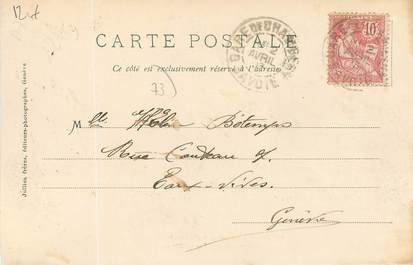 CARTE POSTALE
Ce côté est exclusivement réservé à l'adresse
GARE DE CHAMBÉRY
2
AVRIL
SAVOIE
10c
73
Mlle Bétemps
Rue
Eaux-Vives.
Genève
Jullien frères, éditeurs-photographes, Genève